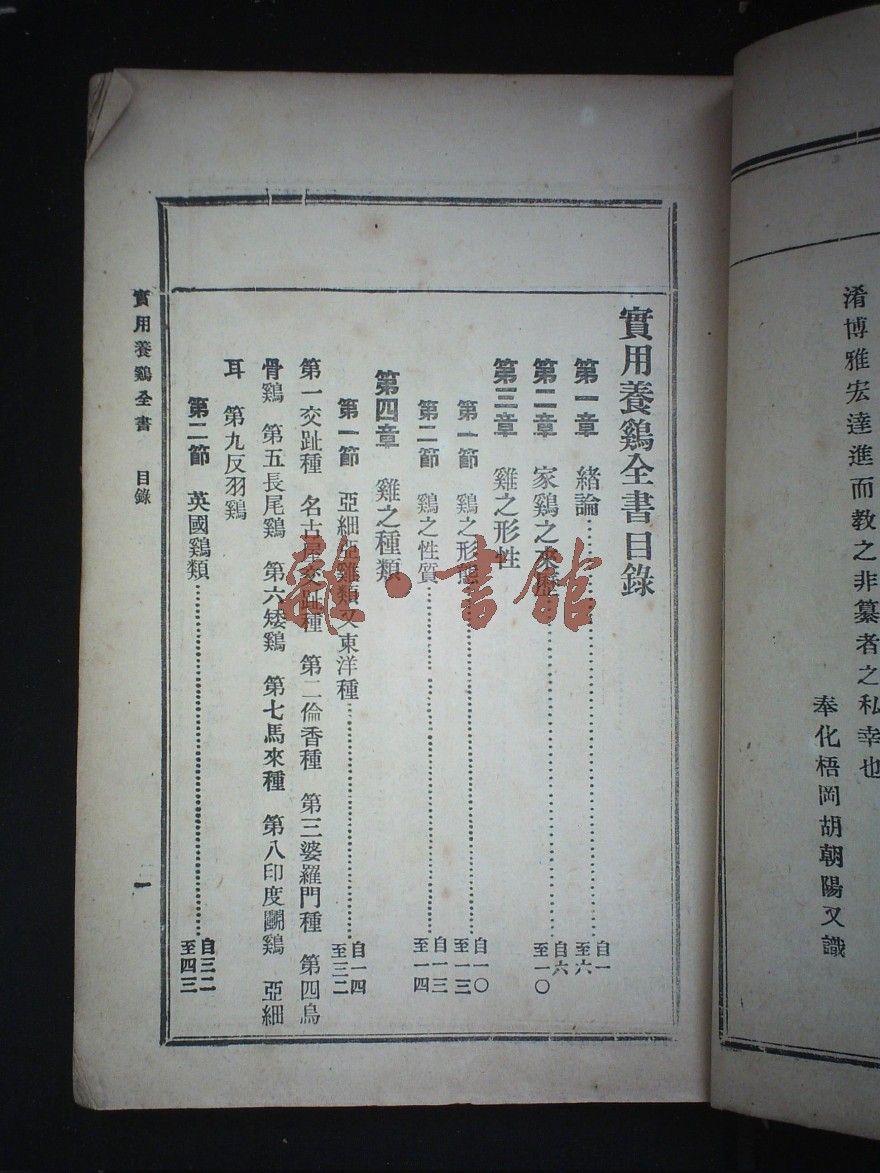 淆博雅宏達進而教之非纂者之私幸也
奉化梧岡胡朝陽又識
實用養鷄全書目錄
第一章 緒論 自一至六
第二章 家鷄之來歷 自六至一〇
第三章 雞之形性
第一節 鷄之形態 自一〇至一三
第二節 鷄之性質 自一三至一四
第四章 雞之種類
第一節 亞細亞雞類又東洋種 自一四至三二
第一交趾種 名古屋交趾種 第二倫香種 第三婆羅門種 第四烏
骨鷄 第五長尾鷄 第六矮鷄 第七馬來種 第八印度鬭鷄 亞細
耳 第九反羽鷄
第二節 英國鷄類 自三二至四三
實用養鷄全書 目錄 一
雜·書館